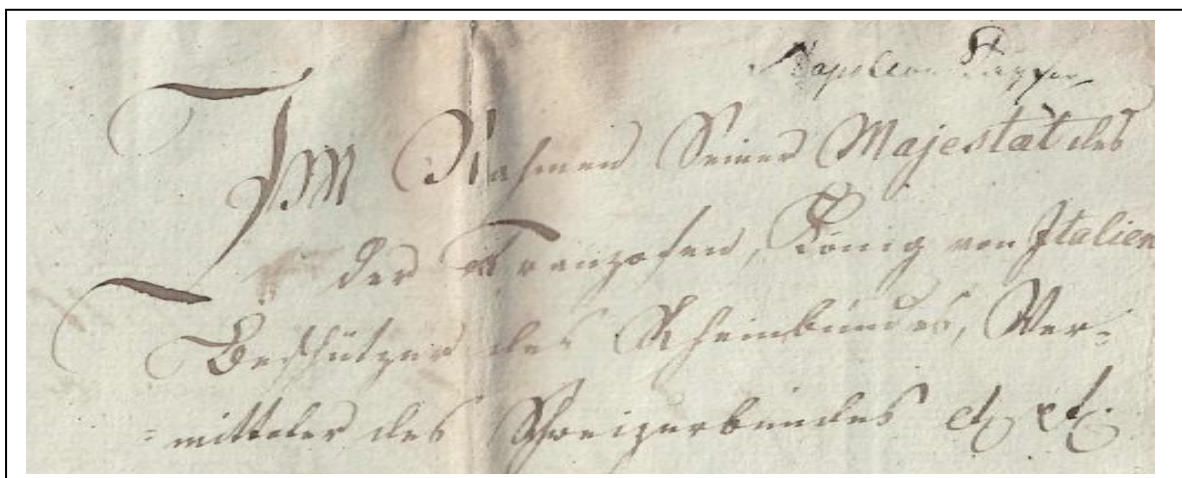 Napoleon Kayser
Im Nahmen Seiner Majestät des
der Franzosen, König von Italien
Beschützer des Rheinbundes, Ver-
=mittler des Schweizerbundes etc etc.